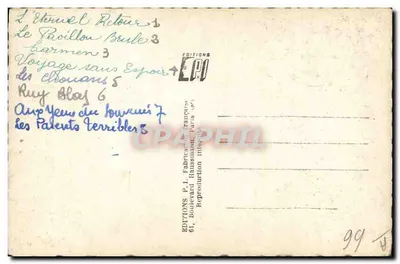 L'Eternel Retour 1
Le Pavillon Brule 3
Carmen 3
Voyage sans Espoir 4
Les chouans 5
Ruy Blas 6
Aux Yeux du Souvenir 7
Les Parents Terribles 5
EDITIONS
EPI
EDITIONS P. I. Fabrication Française
61, Boulevard Haussmann, Paris
Reproduction interdite
99